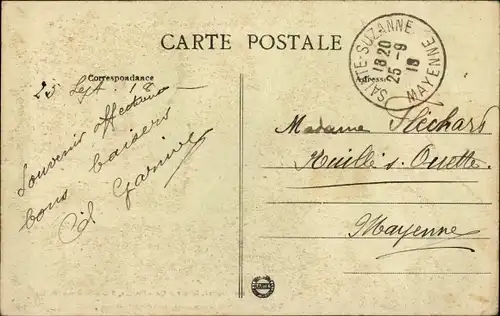 CARTE POSTALE
Correspondance
25 Sept. 18
Souvenirs affectueux
bons baisers
Garnier
SAINTE-SUZANNE
18 20
25 -9
18
MAYENNE
Adresse
Madame Fléchard
Nuillé s. Ouette
Mayenne